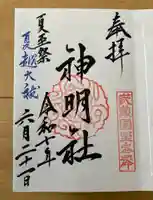 奉拝
神明社
令和七年
六月二十一日
夏至祭
夏越大祓